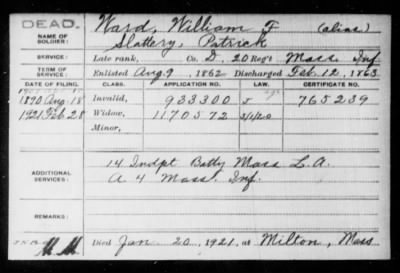 DEAD.
Ward, William F (alias)
NAME OF SOLDIER:
Slattery, Patrick
SERVICE:
Late rank, Co. D, 20 Reg't Mass Inf.
TERM OF SERVICE:
Enlisted Aug 9, 1862 Discharged Feb. 12, 1863
DATE OF FILING. CLASS. APPLICATION NO. CERTIFICATE NO.
1890 Aug 18 Invalid, 933300 765239
1921 Feb 28 Widow, 1170572
Minor,
ADDITIONAL SERVICES:
14 Indpt Batty Mass L.A.
A 4 Mass. Inf.
REMARKS:
Died Jan 20, 1921, at Milton, Mass